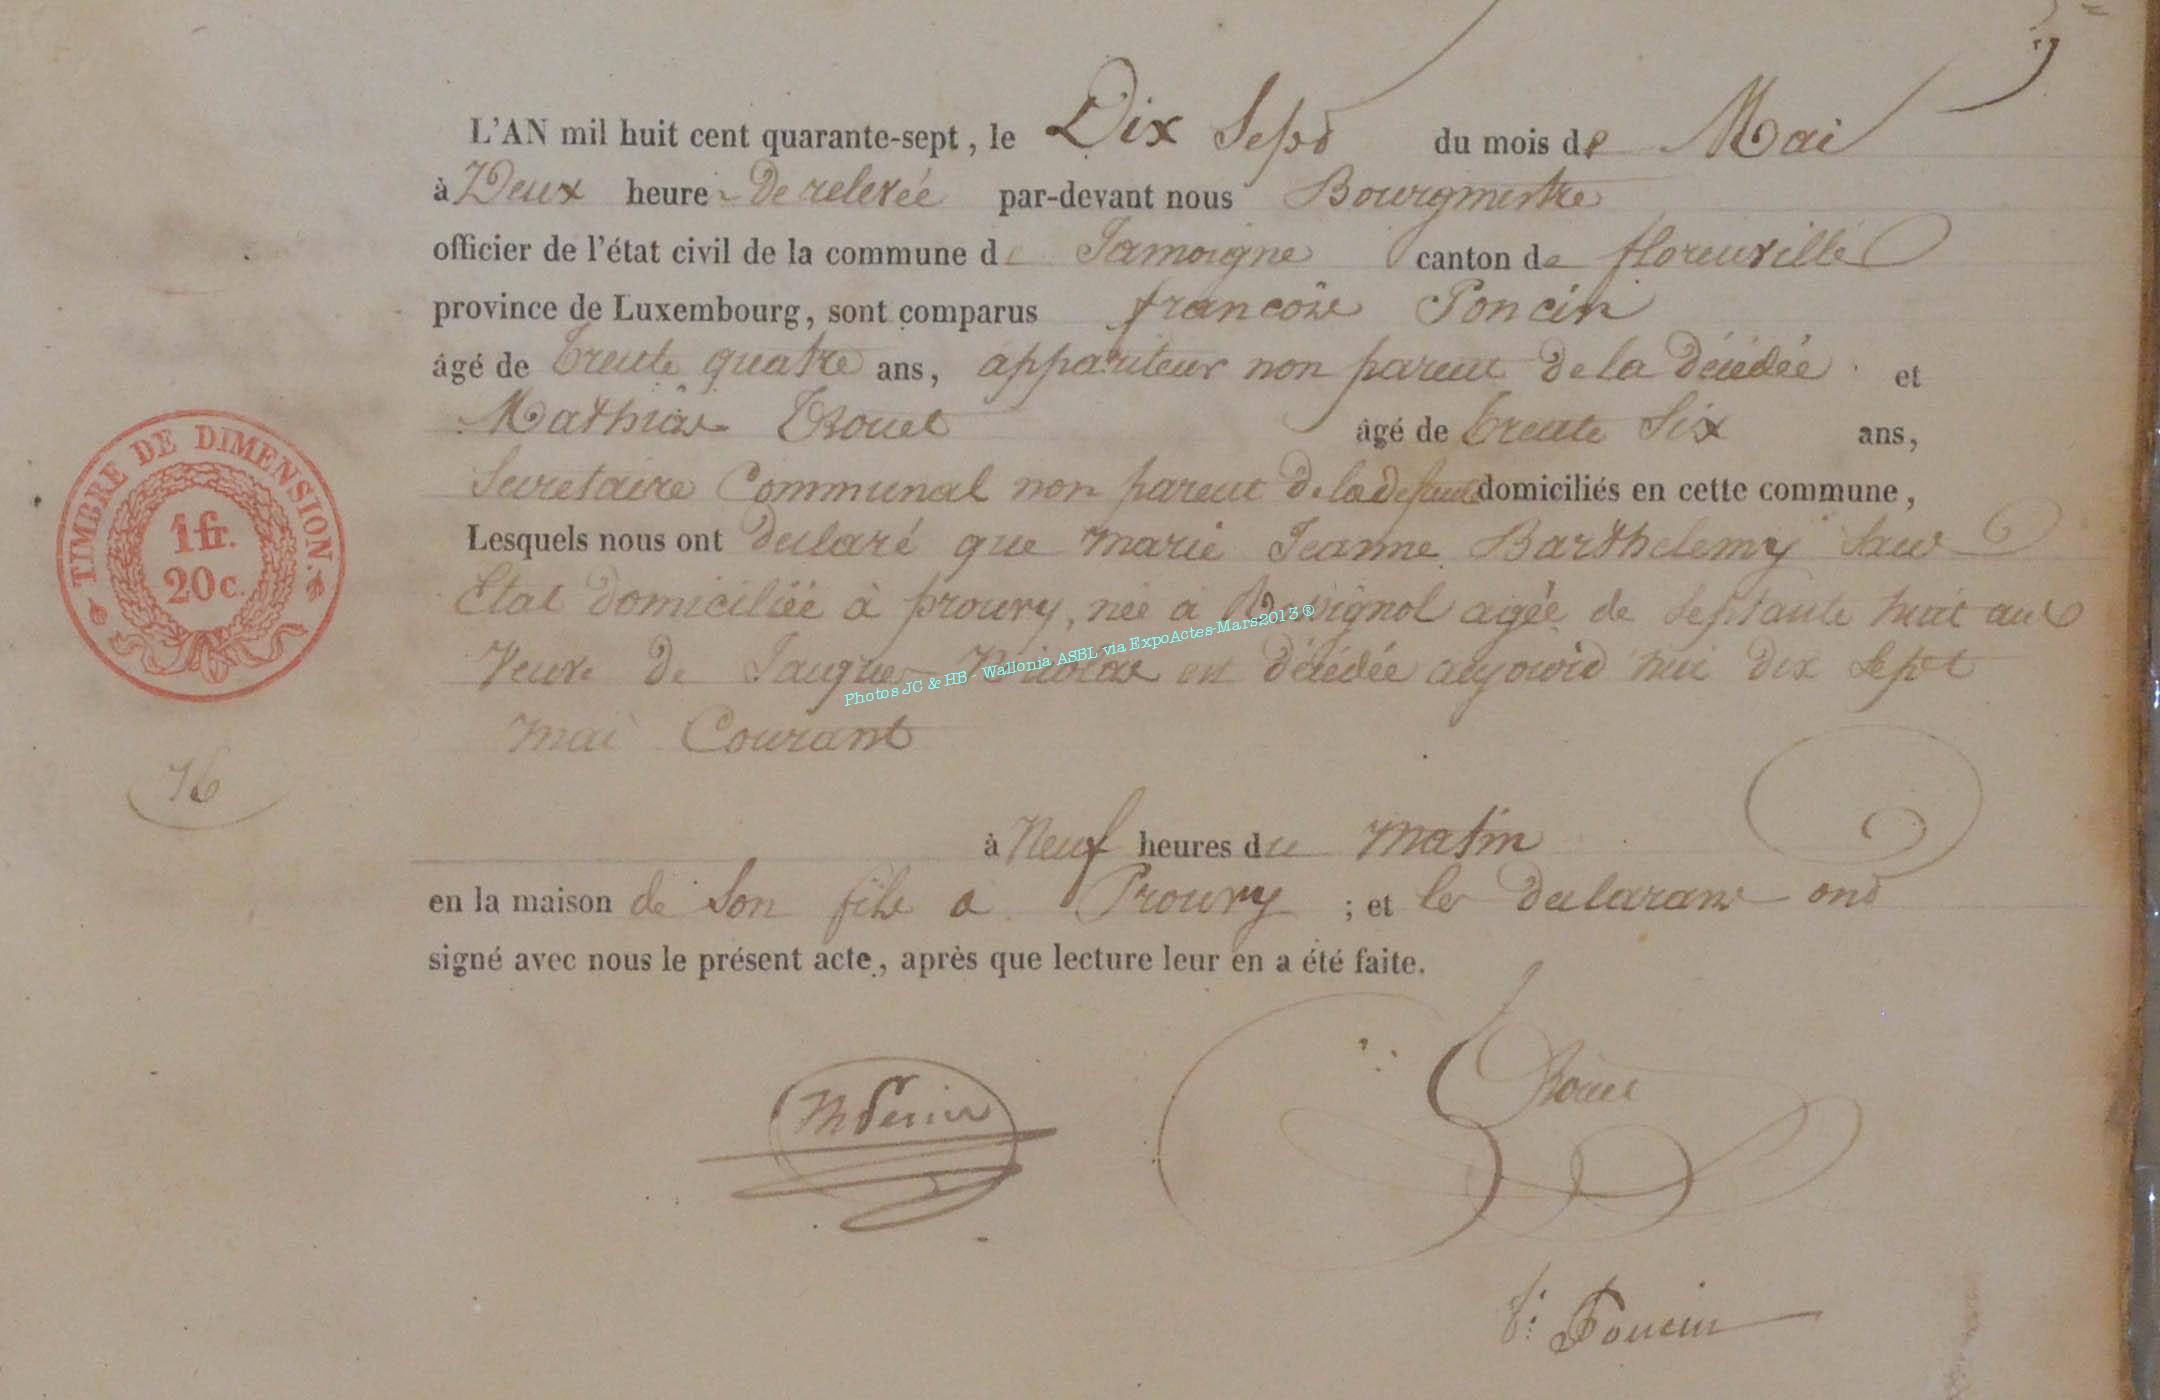 L'AN mil huit cent quarante-sept, le Dix Sept du mois de Mai
à Deux heures De relevée par-devant nous Bourgmestre
officier de l'état civil de la commune de Jamoigne canton de florenville
province de Luxembourg, sont comparus francois Poncin
âgé de trente quatre ans, appariteur non parent de la décédée et
Mathias Thouet âgé de trente Six ans,
Secretaire Communal non parent de la defunte domiciliés en cette commune,
Lesquels nous ont declaré que marie Jeanne Barthelemy Sans
Etat domiciliée à prouvy, née à agée de septante huit ans
Veuve de Jaugue Nicolas est décédée aujourd'hui dix sept
mai Courant
à Neuf heures du matin
en la maison de Son fils a Prouvy ; et les declarans ont
signé avec nous le présent acte, après que lecture leur en a été faite.
TIMBRE DE DIMENSION.
1 fr.
20 c.
16
Photos JC & HB - Wallonia ASBL via ExpoActes-Mars2013 ®
Thouet
f: Poncin